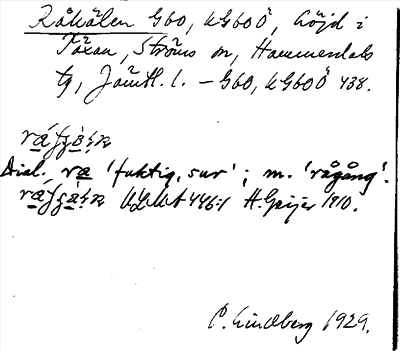 Råkälen G60, kG60Ö, höjd i
Täxan, Ströms sn, Hammerdals
tg, Jämtl. l. — G60, kG60Ö 438.
Dial. ræ 'fuktig, sur'; m. 'rågång'.
446:1 H. Geijer 1910.
C. Lindberg 1929.